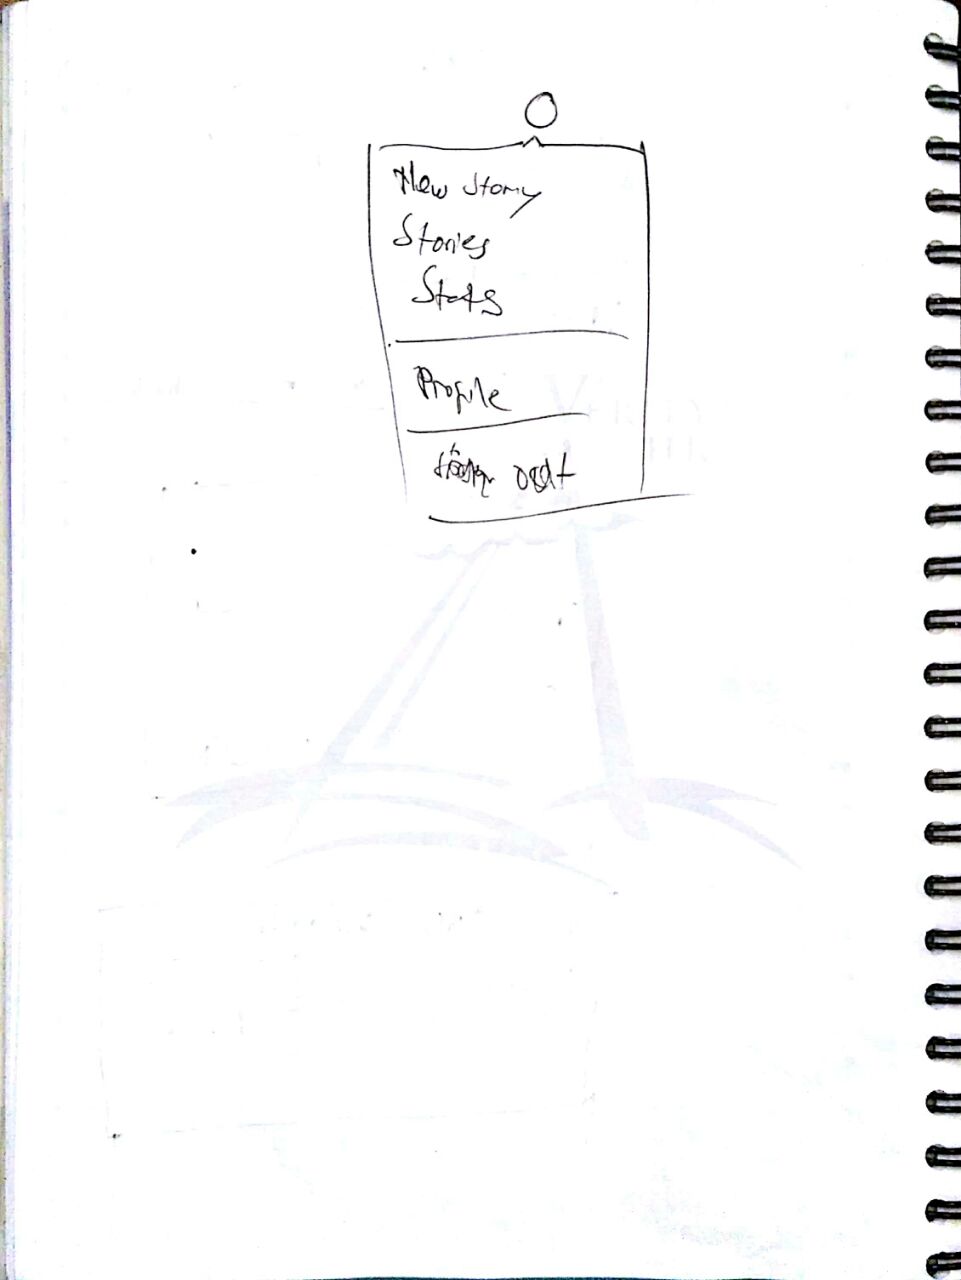 New Story
Stories
Stats
Profile
out